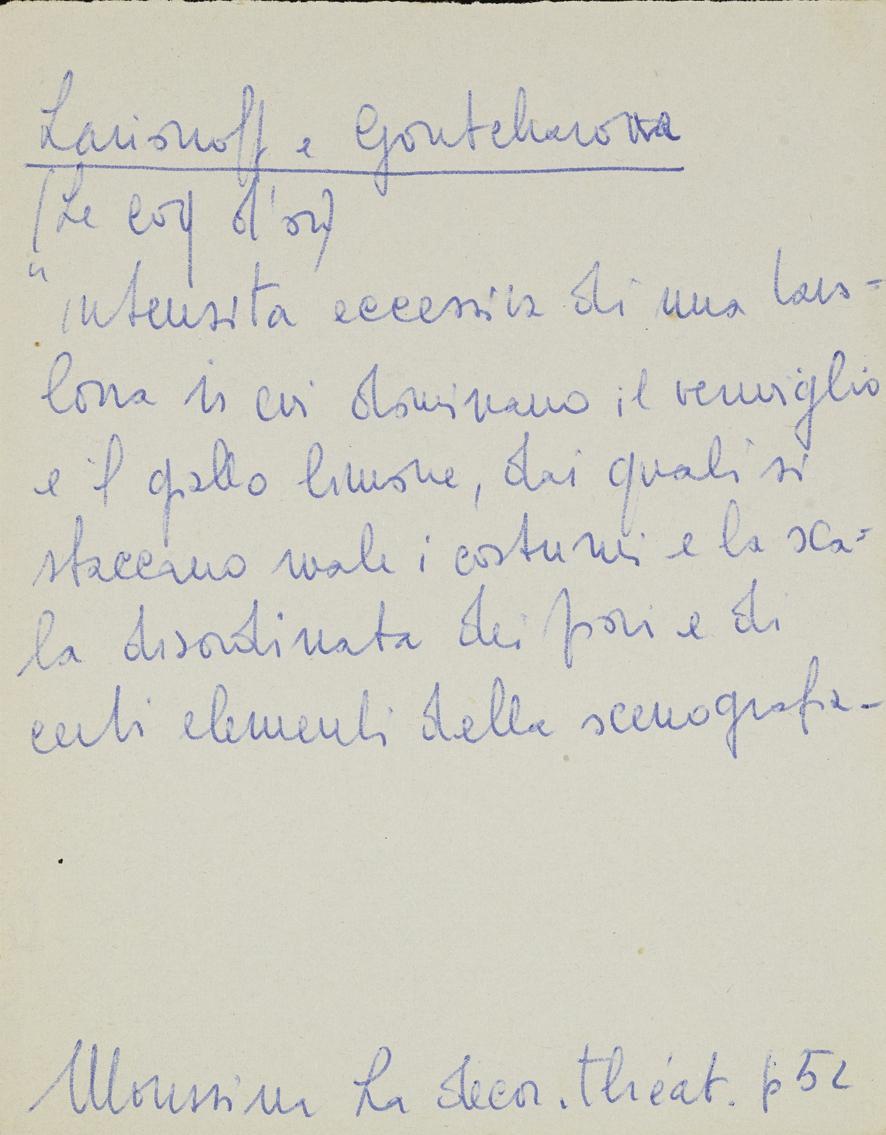 Larionoff e Gontcharova
(Le coq d'or)
"intensità eccessiva di una tavo-
lozza in cui dominano il vermiglio
e il giallo limone, dai quali si
staccano male i costumi e la sca-
la disordinata dei fiori e di
certi elementi della scenografia-
Moussina La decor. théat. p 52